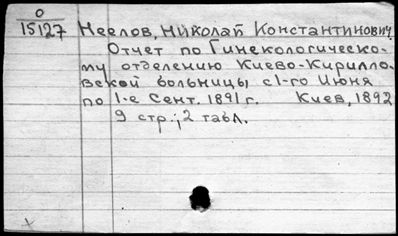 О
15127
Неелов, Николай Константинович
Отчет по Гинекологическо-
му отделению Киево-Кирилло-
вской больницы с 1-го Июня
по 1-е Сент. 1891 г. Киев, 1892
9 стр.; 2 табл.